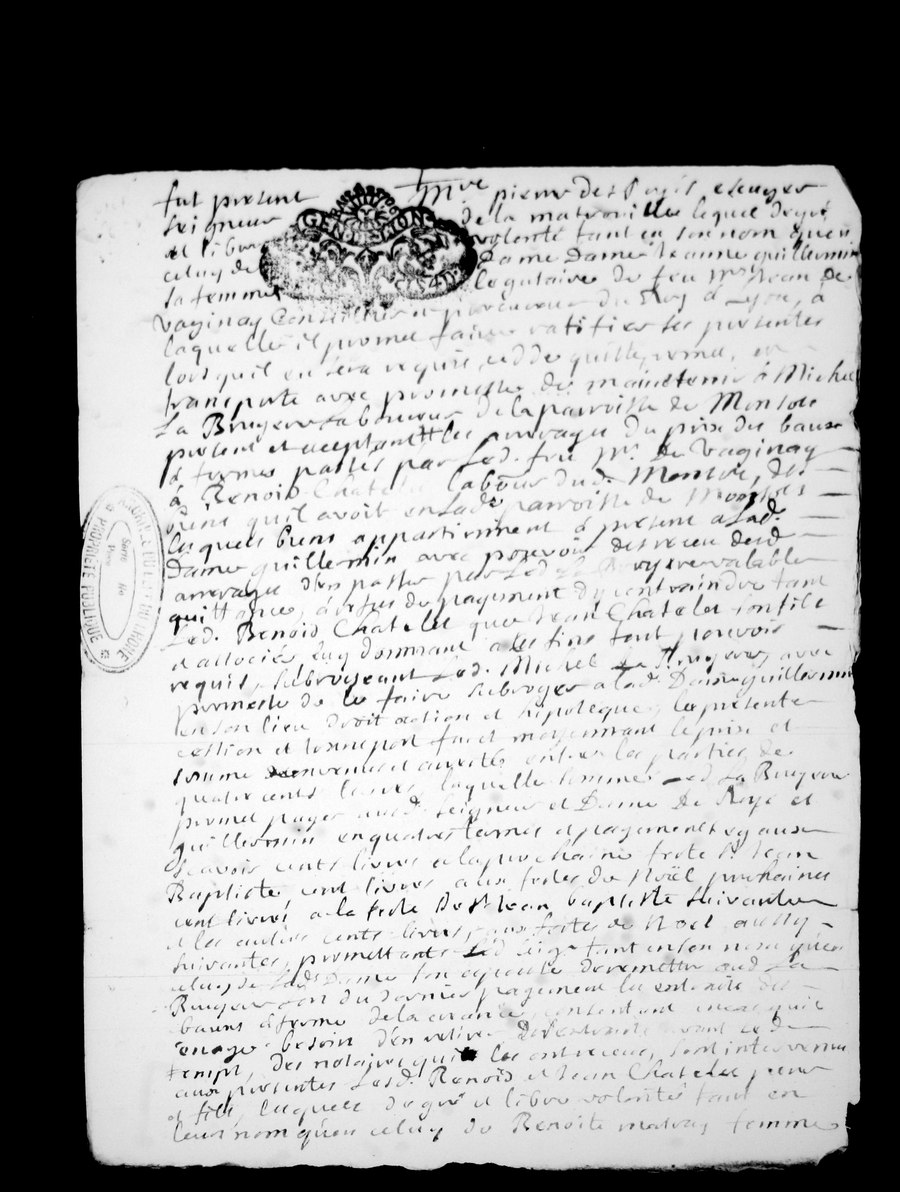 fut present Mre pierre des escuyer
Seigneur de la matrouille lequel de gré
et libre volonté tant en son nom qu'en
celuy de dame dame Jeanne guillermin
sa femme legataire de feu Mr Jean de
GEN DE LYON
vaginay Conseiller et procureur du Roy a Lyon, a
laquelle il promet faire ratifier ses presentes
lors quil en sera requis, cedde quitte, remet, et
transporte avec promesse de maintenir a Michel
La Bruyere Laboureur de la parroisse de Monsols
present et aceptant les arrerages du prix des baux
a fermes passés par led. feu Mr. de vaginay
a Benoid Chatelet labour dud. Monsols, des
biens qu'il avoit en lad. parroisse de Monsols
lesquels biens appartiennent a present a lad.
Dame guillermin avec pouvoir
arrerages d'en passer par led. La Bruyere valable
quittance, a refus de payement d'y contraindre tant
led. Benoid Chatelet que Jean Chatelet son fils
et associés luy donnant a ces fins tout pouvoir
requis, subrogeant led. Michel La Bruyere, avec
promesse de le faire subroger a lad. Dame guillermin
en son lieu droit action et hipoteque, la presente
cession et transport fait moyennant le prix et
somme convenue et arrestée entre les parties de
quatre cents livres, laquelle somme led. La Bruyere
promet payer aud. Seigneur et Dame de et
guillermin en quatre termes et payements egaux
scavoir cents livres a la prochaine feste St Jean
Baptiste cent livres aux festes de Noël prochaines
cent livres a la feste de St Jean baptiste suivante
et les autres cents livres aux festes de Noel aussy
suivantes, promettants led. Seigr tant en son nom qu'en
celuy de lad. Dame son epouse de remettre aud. La
Bruyere lors du dernier payement les extraits des
baux a ferme de la creance, consentant en cas quil
en aye besoin d'en retirer
des notaires qui les ont receus, sont intervenu
aux presentes lesd. Benoid et Jean Chatelet pere
et fils, lesquels de gré et libre volonté tant en
leurs nom qu'en celuy de Benoite matray femme
PROPRIÉTÉ PUBLIQUE